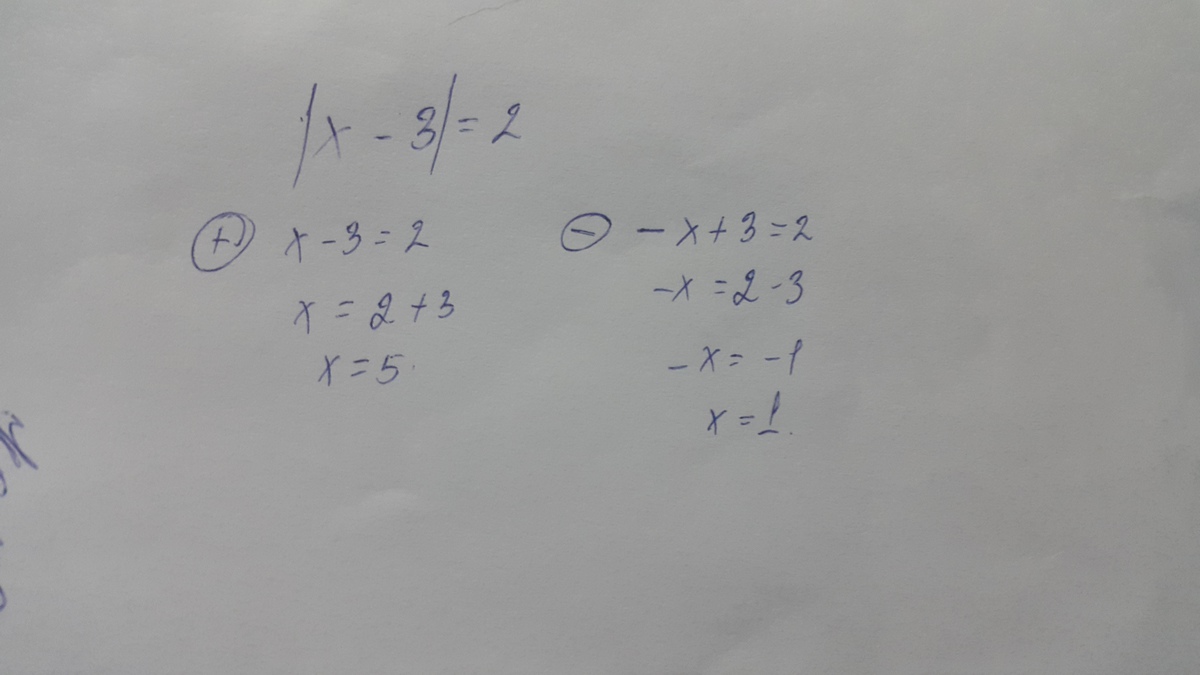 |x - 3| = 2
⊕ x - 3 = 2
x = 2 + 3
x = 5.
⊖ - x + 3 = 2
-x = 2 - 3
- x = -1
x = 1.